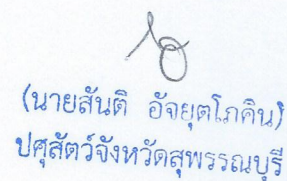 (นายสันติ อัจยุตโภคิน)
ปศุสัตว์จังหวัดสุพรรณบุรี